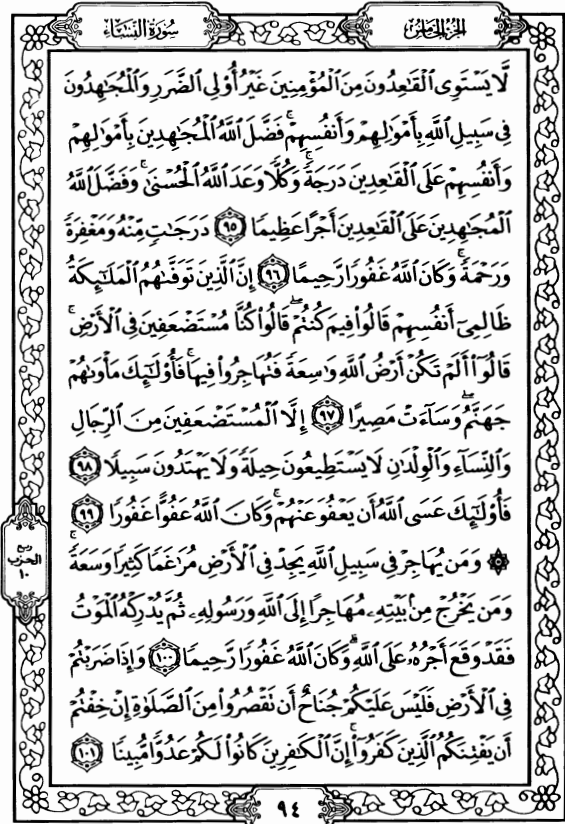 الجزء الخامس
سورة النساء
لَّا يَسْتَوِى ٱلْقَٰعِدُونَ مِنَ ٱلْمُؤْمِنِينَ غَيْرُ أُو۟لِى ٱلضَّرَرِ وَٱلْمُجَٰهِدُونَ
فِى سَبِيلِ ٱللَّهِ بِأَمْوَٰلِهِمْ وَأَنفُسِهِمْ ۚ فَضَّلَ ٱللَّهُ ٱلْمُجَٰهِدِينَ بِأَمْوَٰلِهِمْ
وَأَنفُسِهِمْ عَلَى ٱلْقَٰعِدِينَ دَرَجَةً ۚ وَكُلًّا وَعَدَ ٱللَّهُ ٱلْحُسْنَىٰ ۚ وَفَضَّلَ ٱللَّهُ
ٱلْمُجَٰهِدِينَ عَلَى ٱلْقَٰعِدِينَ أَجْرًا عَظِيمًا ٩٥ دَرَجَٰتٍ مِّنْهُ وَمَغْفِرَةً
وَرَحْمَةً ۚ وَكَانَ ٱللَّهُ غَفُورًا رَّحِيمًا ٩٦ إِنَّ ٱلَّذِينَ تَوَفَّىٰهُمُ ٱلْمَلَٰٓئِكَةُ
ظَالِمِىٓ أَنفُسِهِمْ قَالُوا۟ فِيمَ كُنتُمْ ۖ قَالُوا۟ كُنَّا مُسْتَضْعَفِينَ فِى ٱلْأَرْضِ ۚ
قَالُوٓا۟ أَلَمْ تَكُنْ أَرْضُ ٱللَّهِ وَٰسِعَةً فَتُهَاجِرُوا۟ فِيهَا ۚ فَأُو۟لَٰٓئِكَ مَأْوَىٰهُمْ
جَهَنَّمُ ۖ وَسَآءَتْ مَصِيرًا ٩٧ إِلَّا ٱلْمُسْتَضْعَفِينَ مِنَ ٱلرِّجَالِ
وَٱلنِّسَآءِ وَٱلْوِلْدَٰنِ لَا يَسْتَطِيعُونَ حِيلَةً وَلَا يَهْتَدُونَ سَبِيلًا ٩٨
فَأُو۟لَٰٓئِكَ عَسَى ٱللَّهُ أَن يَعْفُوَ عَنْهُمْ ۚ وَكَانَ ٱللَّهُ عَفُوًّا غَفُورًا ٩٩
۞ وَمَن يُهَاجِرْ فِى سَبِيلِ ٱللَّهِ يَجِدْ فِى ٱلْأَرْضِ مُرَٰغَمًا كَثِيرًا وَسَعَةً ۚ
وَمَن يَخْرُجْ مِنۢ بَيْتِهِۦ مُهَاجِرًا إِلَى ٱللَّهِ وَرَسُولِهِۦ ثُمَّ يُدْرِكْهُ ٱلْمَوْتُ
فَقَدْ وَقَعَ أَجْرُهُۥ عَلَى ٱللَّهِ ۗ وَكَانَ ٱللَّهُ غَفُورًا رَّحِيمًا ١٠٠ وَإِذَا ضَرَبْتُمْ
فِى ٱلْأَرْضِ فَلَيْسَ عَلَيْكُمْ جُنَاحٌ أَن تَقْصُرُوا۟ مِنَ ٱلصَّلَوٰةِ إِنْ خِفْتُمْ
أَن يَفْتِنَكُمُ ٱلَّذِينَ كَفَرُوٓا۟ ۚ إِنَّ ٱلْكَٰفِرِينَ كَانُوا۟ لَكُمْ عَدُوًّا مُّبِينًا ١٠١
ربع
الحزب
١٠
٩٤